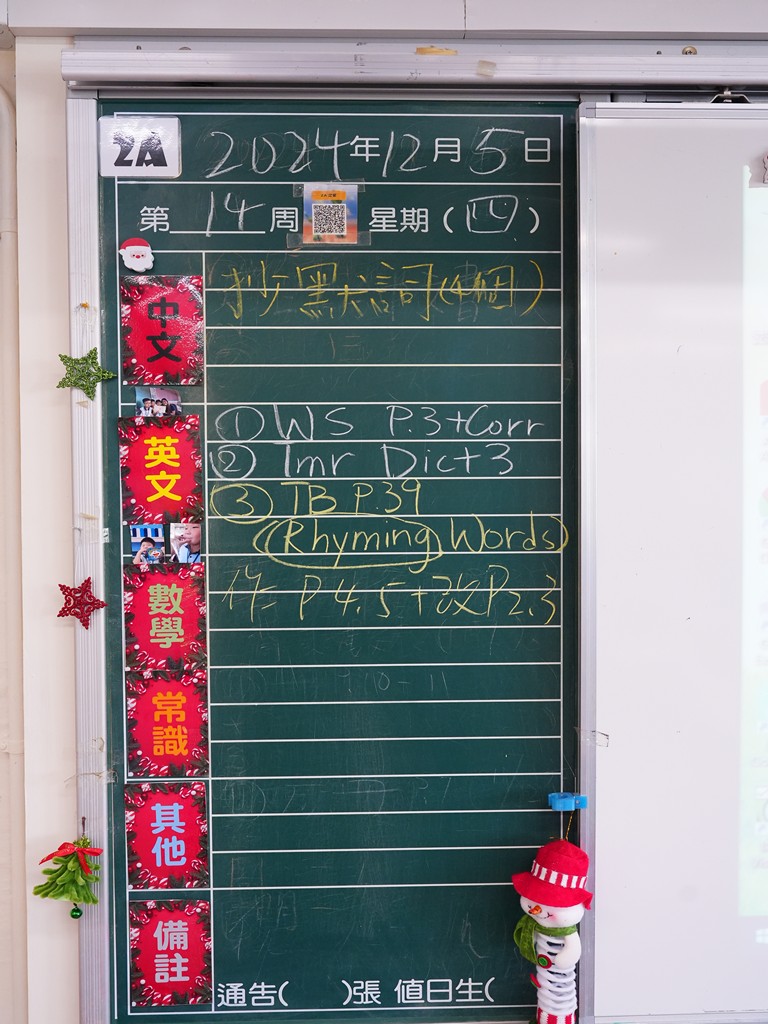 2A
2024年12月5日
第14周 星期(四)
中文
抄默詞(4個)
英文
①WS P.3+Corr
② Tmr Dict 3
③ TB P.39
(Rhyming Words)
數學
作= P 4.5+改P2.3
常識
其他
備註
通告( )張 值日生(